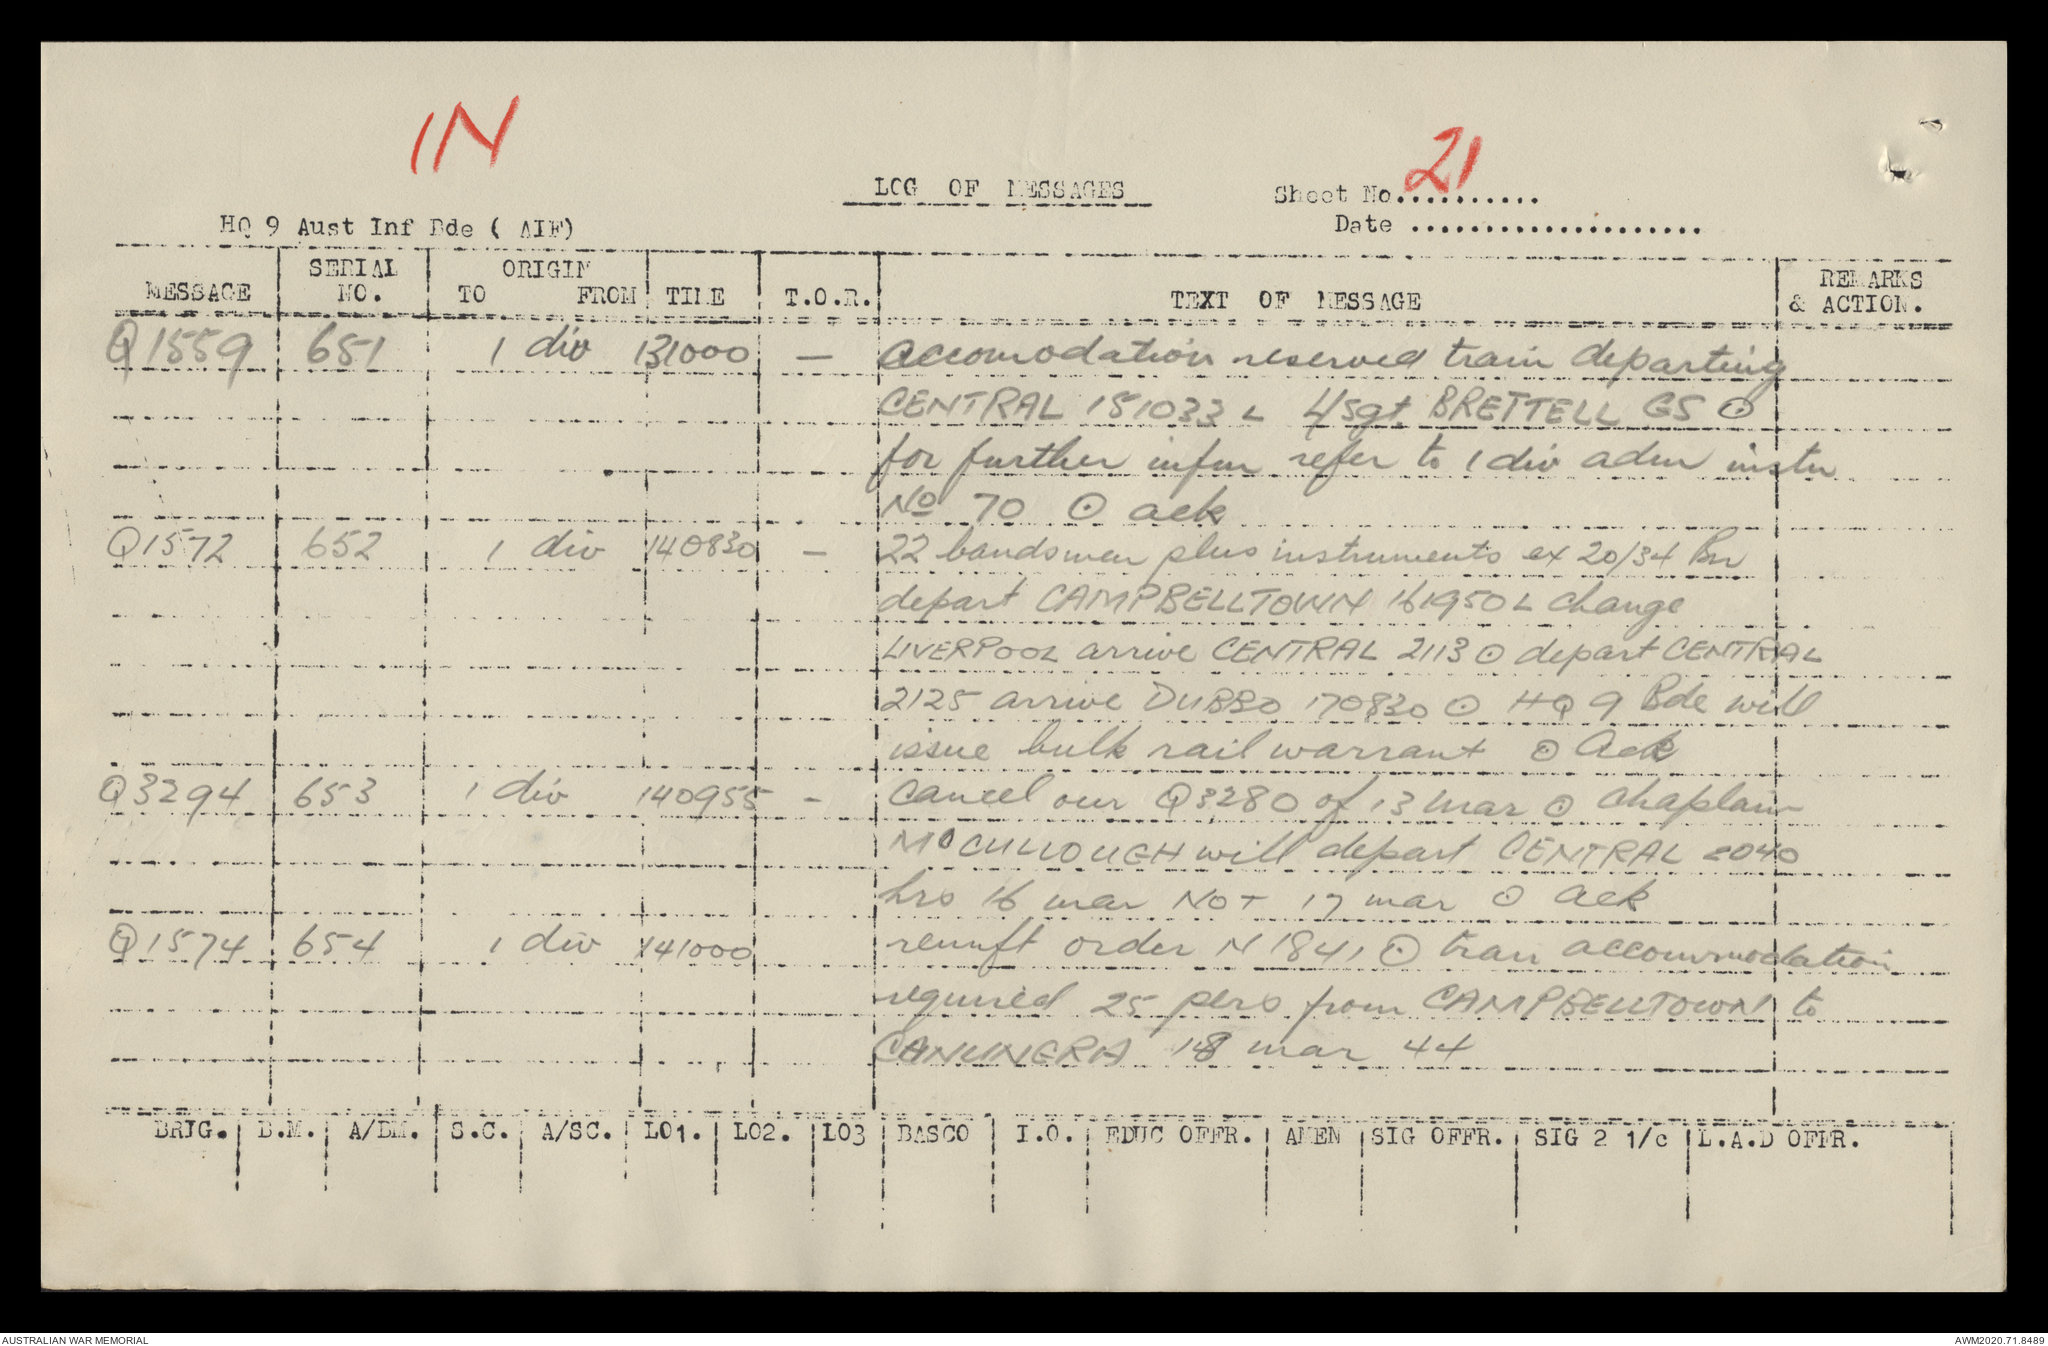 IN
LOG OF MESSAGES
Sheet No. 21
HQ 9 Aust Inf Bde ( AIF)
Date .....................
MESSAGE SERIAL NO. ORIGIN TO FROM TIME T.O.R. TEXT OF MESSAGE REMARKS & ACTION.
Q1559 651 1 div 131000 — accomodation reserved train departing
CENTRAL 151033 L L/Sgt. BRETTELL GS ⊙
for further infm refer to 1 div adm instn
No 70 ⊙ ack
Q1572 652 1 div 140830 — 22 bandsmen plus instruments ex 20/34 Bn
depart CAMPBELLTOWN 161950 L change
LIVERPOOL arrive CENTRAL 2113 ⊙ depart CENTRAL
2125 arrive DUBBO 170830 ⊙ HQ 9 Bde will
issue bulk rail warrant ⊙ Ack
Q3294 653 1 div 140955 - Cancel our Q3280 of 13 Mar ⊙ Chaplain
McCULLOUGH will depart CENTRAL 2040
hrs 16 mar NOT 17 mar ⊙ ack
Q1574 654 1 div 141000 reinft order N 1841 ⊙ tran accommodation
required 25 pers from CAMPBELLTOWN to
CANUNGRA 18 mar 44
BRIG. B.M. A/BM. S.C. A/SC. LO1. LO2. LO3 BASCO I.O. EDUC OFFR. AMEN SIG OFFR. SIG 2 1/c L.A.D OFFR.
AUSTRALIAN WAR MEMORIAL
AWM2020.71.8489